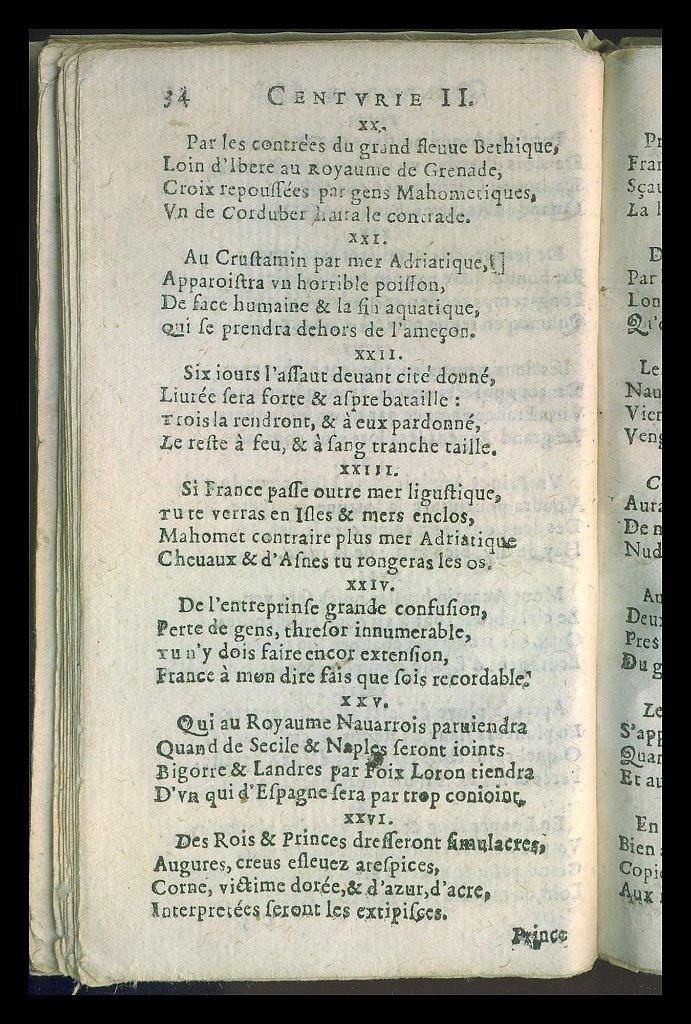 34 CENTVRIE II.
XX.
Par les contrées du grand fleuue Bethique,
Loin d'Ibere au Royaume de Grenade,
Croix repouſſées par gens Mahometiques,
Vn de Corduber le contrade.
XXI.
Au Cruſtamin par mer Adriatique,
Apparoiſtra vn horrible poiſſon,
De face humaine & la aquatique,
Qui ſe prendra dehors de l'ameçon.
XXII.
Six iours l'aſſaut deuant cité donné,
Liurée ſera forte & aſpre bataille :
Trois la rendront, & à eux pardonné,
Le reſte à feu, & à ſang tranche taille.
XXIII.
Si France paſſe outre mer liguſtique,
Tu te verras en Iſles & mers enclos,
Mahomet contraire plus mer Adriatique
Cheuaux & d'Aſnes tu rongeras les os.
XXIV.
De l'entreprinſe grande confuſion,
Perte de gens, threſor innumerable,
Tu n'y dois faire encor extenſion,
France à mon dire fais que ſois recordable.
XXV.
Qui au Royaume Nauarrois paruiendra
Quand de Secile & Naples ſeront ioints
Bigorre & Landres par Foix Loron tiendra
D'vn qui d'Eſpagne ſera par trop conioint.
XXVI.
Des Rois & Princes dreſſeront ſimulacres,
Augures, creus eſleuez areſpices,
Corne, victime dorée, & d'azur, d'acre,
Interpretées ſeront les extipiſces.
Prince
Par
Lon
Le
Nau
Vier
Veng
Aura
De
Nud
Au
Deux
Pres
Du g
Le
S'app
Quan
Et au
En
Bien
Copi
Aux